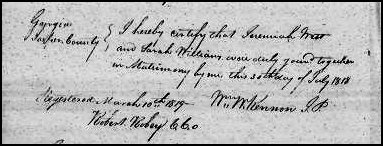 Georgia
Jasper County } I hereby certify that Jeremiah West
and Sarah Williams were duly joined together
in Matrimony by me, this 30th day of July 1818
Registered March 10th 1819 Wm. W. Kennon J.P.
Robert Robey C.C.O